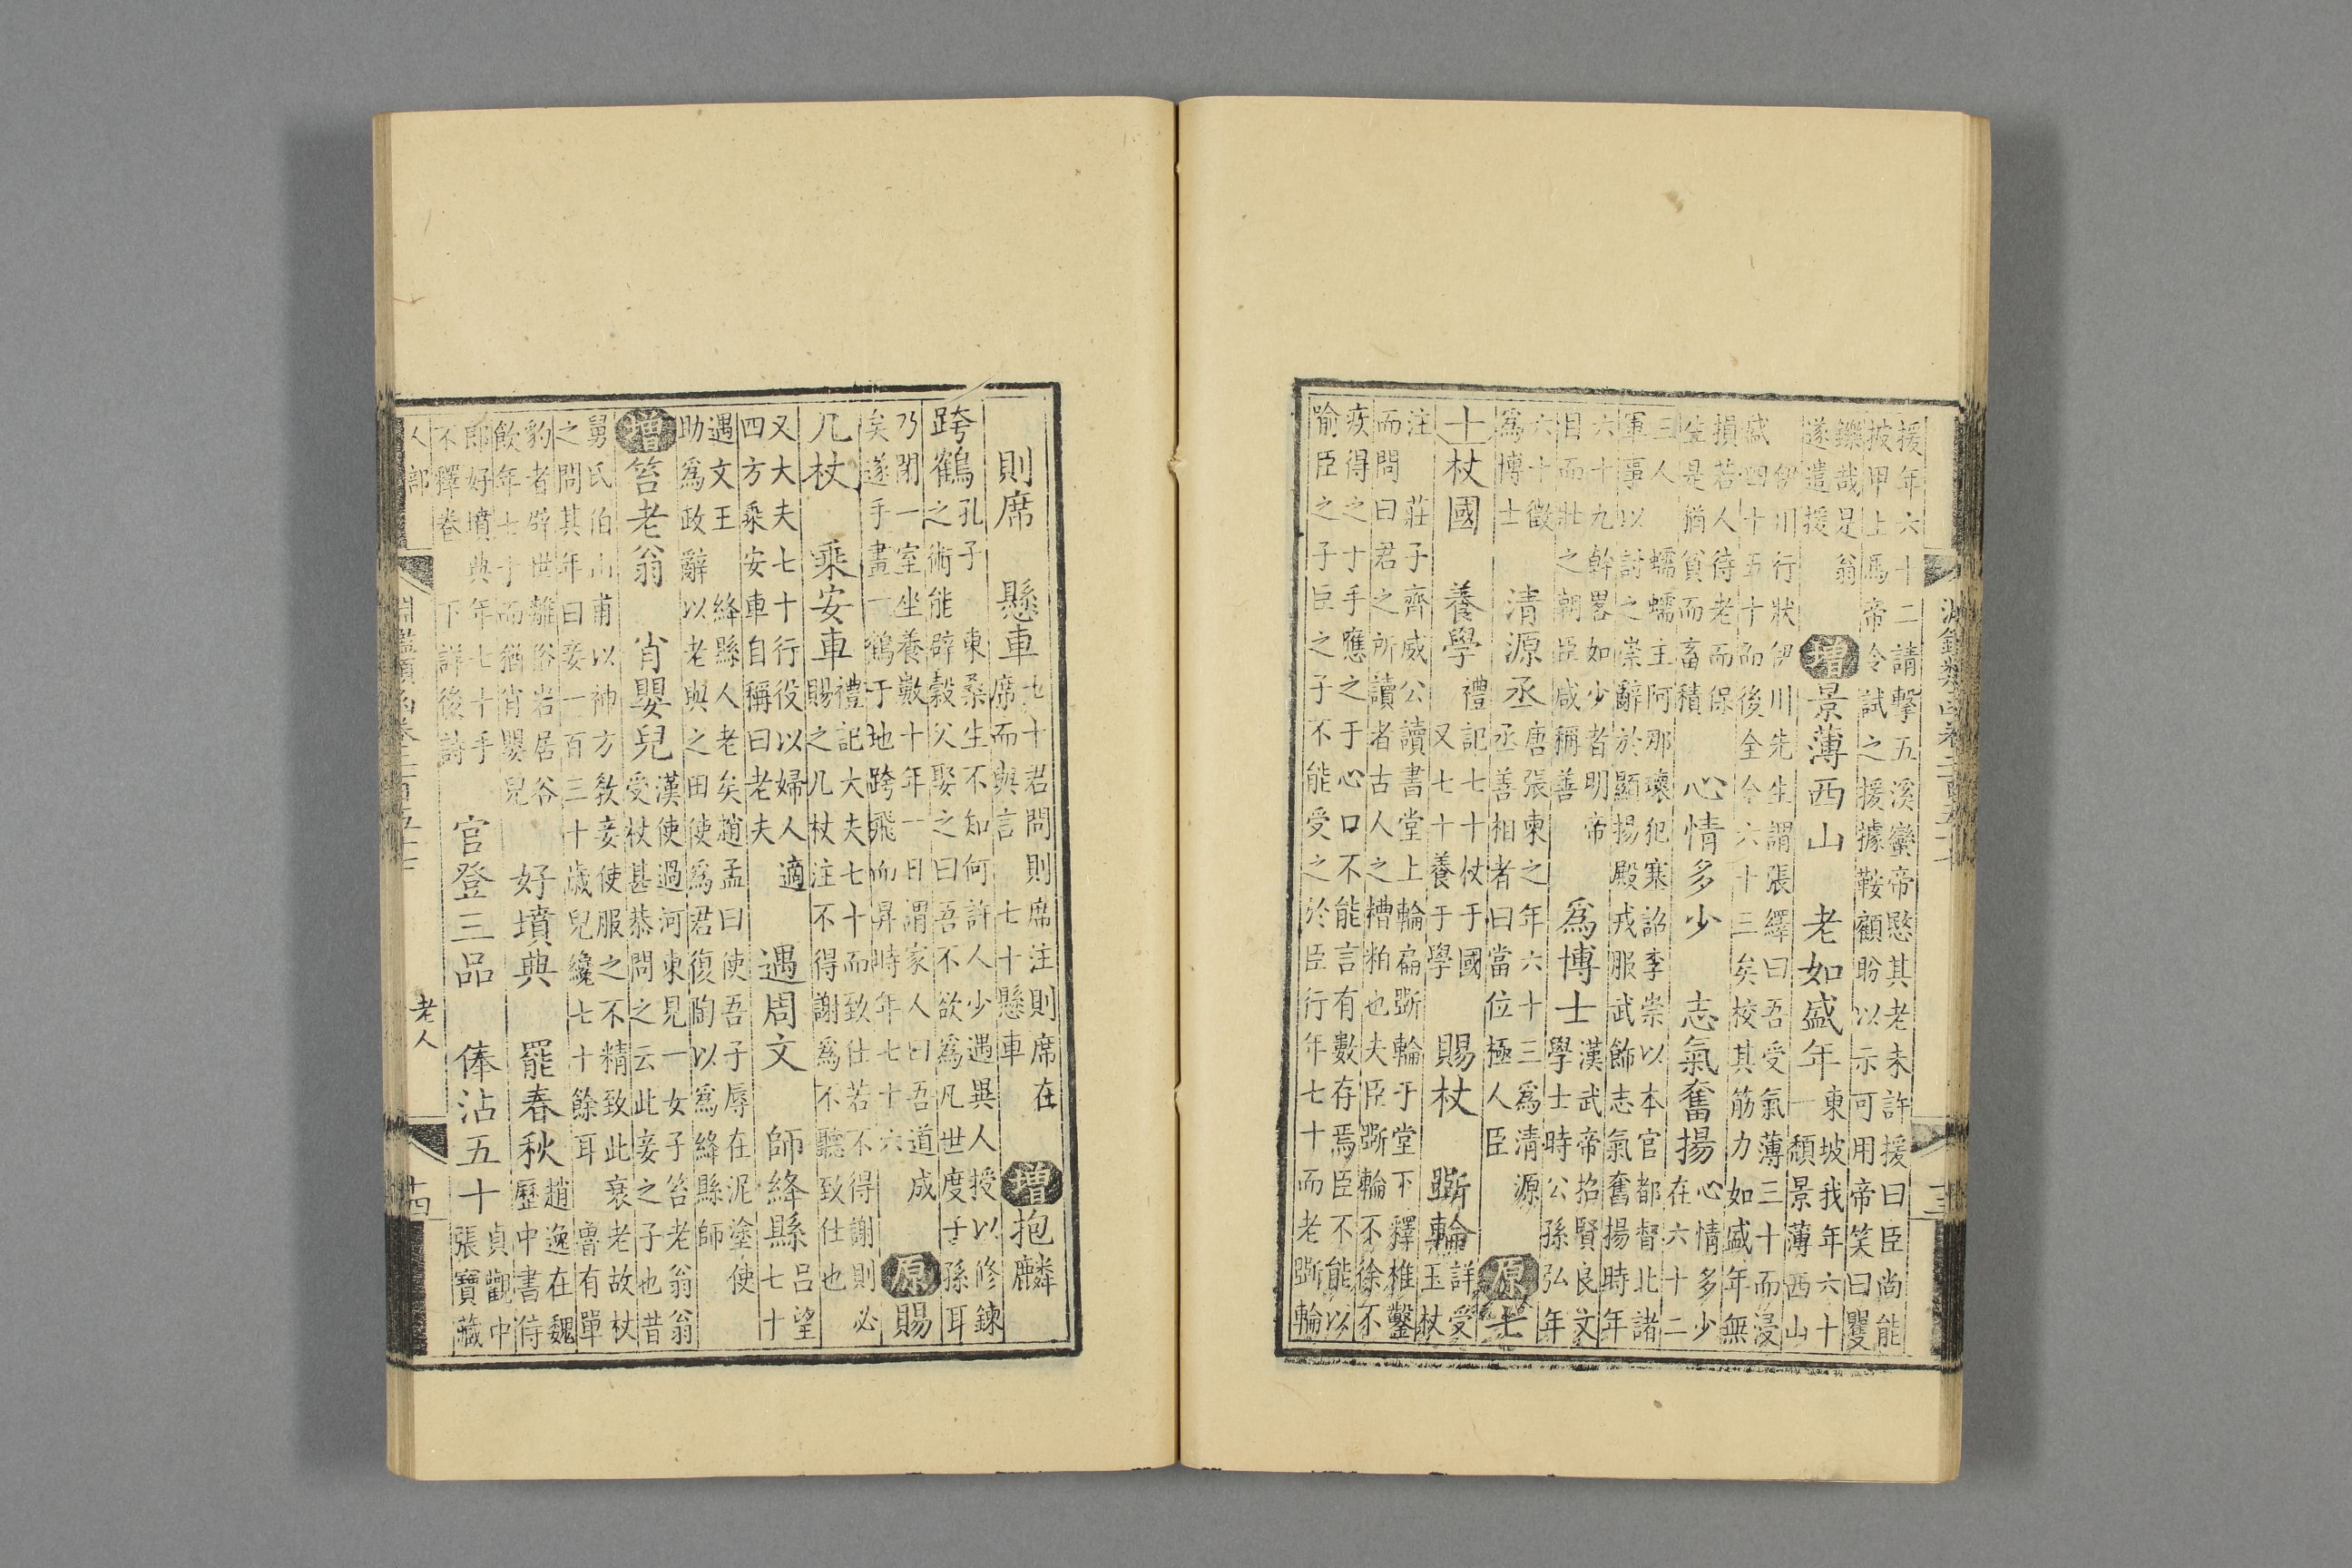 援年六十二請擊五溪蠻帝愍其老未許援曰臣尚能
披甲上馬帝令試之援據鞍顧盼以示可用帝笑曰矍
鑠哉是翁遂遣援 增景薄西山 老如盛年東坡我年六十一頹景薄西山
伊川行狀伊川先生謂張繹曰吾受氣薄三十而浸
盛四十五十而後全今六十三矣校其筋力如盛年無
損若人待老而保生是猶貧而畜積 心情多少 志氣奮揚心情多少在六十二
三人 蠕蠕主阿那瓌犯塞詔李崇以本官都督北諸
軍事以討之崇辭於顯揚殿戎服武飾志氣奮揚時年
六十九幹畧如少者明帝目而壯之朝臣咸稱善 爲博士漢武帝招賢良文學士時公孫弘年
六十徵爲博士 清源丞唐張柬之年六十三爲清源丞善相者曰當位極人臣 原七
十杖國 養學禮記七十杖于國又七十養于學 賜杖 斲輪詳受玉杖
注 莊子齊威公讀書堂上輪扁斲輪于堂下釋椎鑿
而問曰君之所讀者古人之糟粕也夫臣斲輪不徐不
疾得之于手應之于心口不能言有數存焉臣不能以
喻臣之子臣之子不能受之於臣行年七十而老斲輪
則席 懸車七十君問則席注則席在席而與言七十懸車 增抱麟
跨鶴孔子 東桑生不知何許人少遇異人授以修鍊之術能辟穀父娶之曰吾不欲爲凡世度子孫耳
乃閉一室坐養數十年一日謂家人曰吾道成矣遂手畫一鶴于地跨飛而昇時年七十六 原賜
几杖 乘安車禮記大夫七十而致仕若不得謝則必賜之几杖注不得謝爲不聽致仕也
又大夫七十行役以婦人適四方乘安車自稱曰老夫 遇周文 師絳縣吕望七十
遇文王助爲政 絳縣人老矣趙孟曰使吾子辱在泥塗使辭以老與之田使爲君復陶以爲絳縣師
增笞老翁 肖嬰兒漢使過河東見一女子笞老翁翁受杖甚恭問之云此妾之子也昔
舅氏伯山甫以神方敎妾使服之不精致此衰老故杖
之問其年曰妾一百三十歲兒纔七十餘耳 魯有單
豹者辟世離俗岩居谷飲年七十而猶肖嬰兒 好墳典 罷春秋趙逸在魏歷中書侍
郎好墳典年七十手不釋卷 下詳後詩 官登三品 俸沾五十貞觀中張寶藏
人部
淵鑑類函卷二百五十七
老人
十四